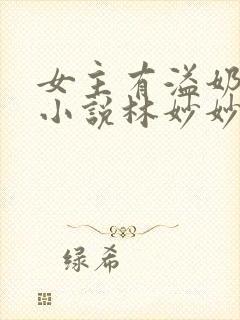 女主有溢奶
小说林妙妙
绿希